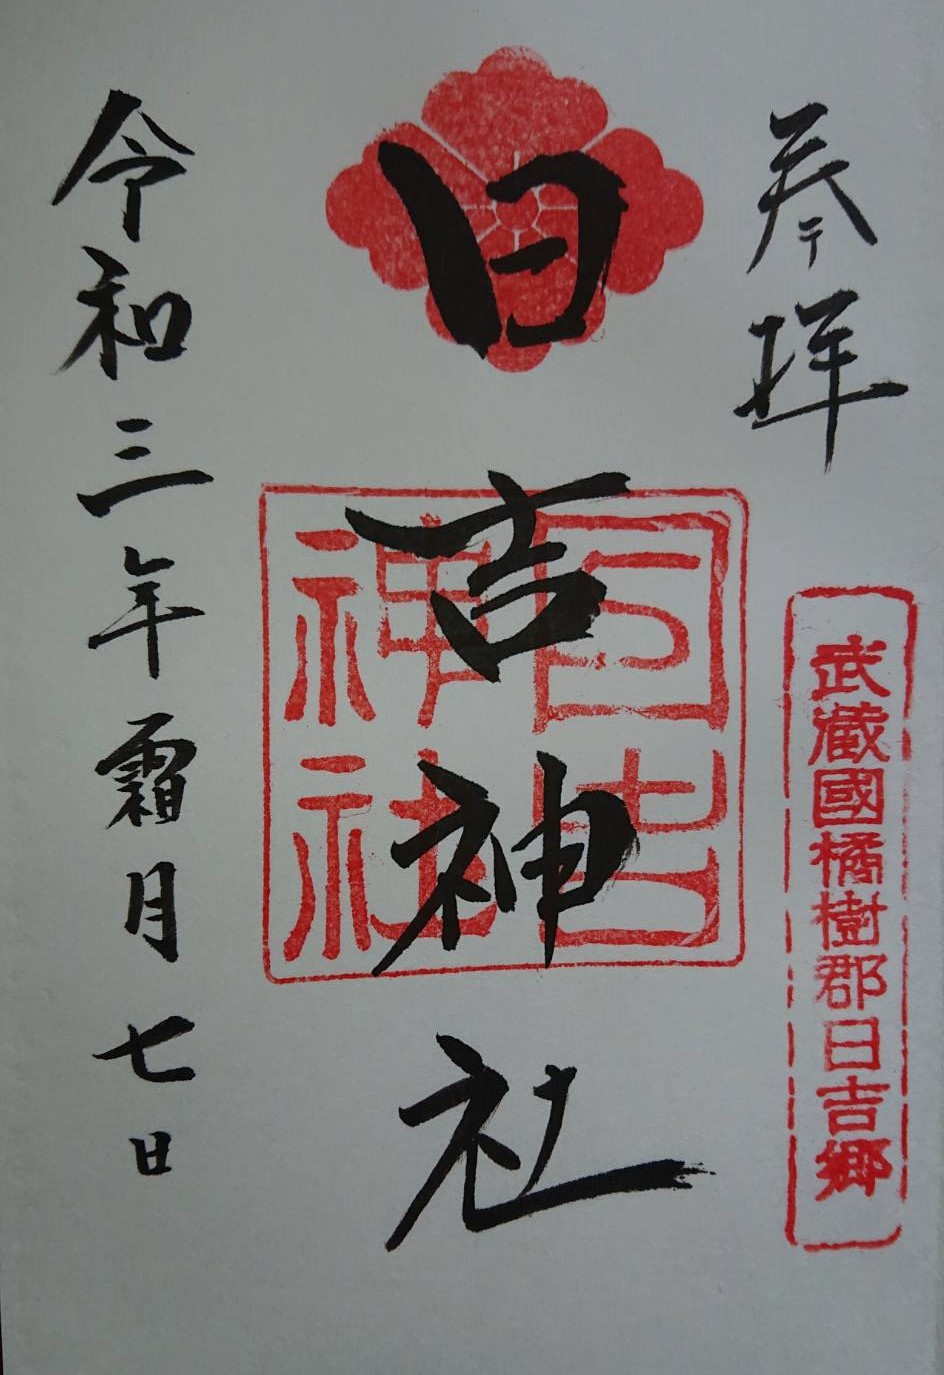 奉拝
武蔵國橘樹郡日吉郷
日吉神社
日吉
神社
令和三年霜月七日